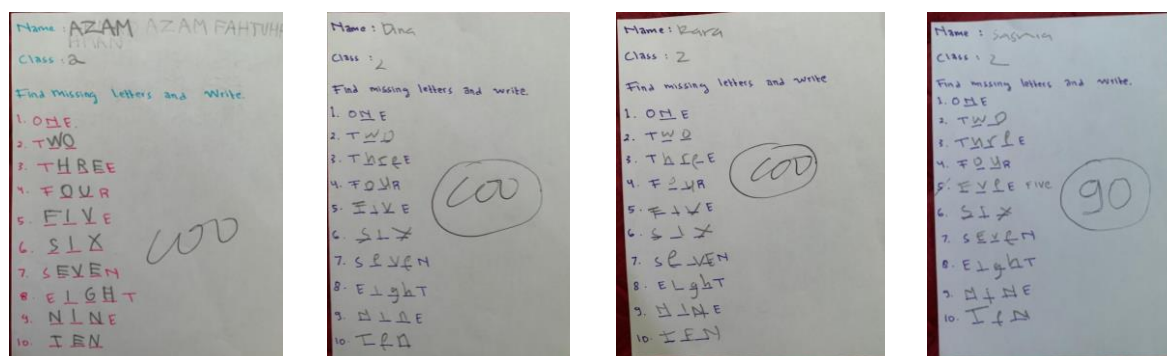 Name : AZAM AZAM FAHTUHH
HMAN
Class : 2
Find missing letters and write.
1. ONE
2. TWO
3. THREE
4. FOUR
5. FIVE
6. SIX
7. SEVEN
8. EIGHT
9. NINE
10. TEN
100
Name : Dina
Class : 2
Find missing letters and write.
1. ONE
2. TWO
3. ThreE
4. FOUR
5. FIVE
6. SIX
7. SeVeN
8. EIghT
9. NInE
10. Ten
100
Name : Rara
Class : 2
Find missing letters and write
1. ONE
2. TWO
3. ThreE
4. FOUR
5. FIVE
6. SIX
7. SeVEN
8. EIghT
9. NINE
10. TEN
100
Name :
Class : 2
Find missing letters and write.
1. ONE
2. TWO
3. ThrEE
4. FOUR
5. EVEE FIVE
6. SIX
7. SEVEN
8. EIghT
9. NINE
10. TeN
90